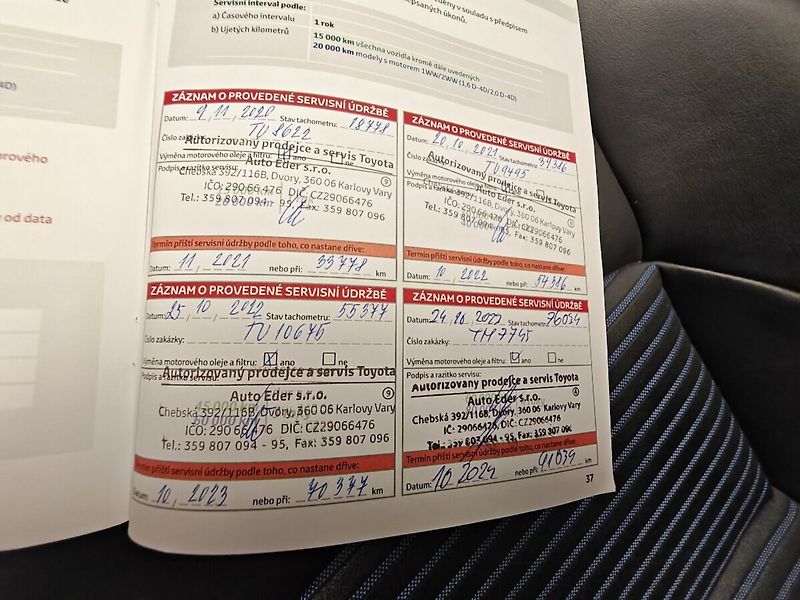 Servisní interval podle:
a) Časového intervalu
b) Ujetých kilometrů
1 rok
15 000 km všechna vozidla kromě dále uvedených
20 000 km modely s motorem 1WW/2WW (1,6 D-4D/2,0 D-4D)
v souladu s předpisem
úkonů.
4D)
orového
od data
ZÁZNAM O PROVEDENÉ SERVISNÍ ÚDRŽBĚ
Datum: 9, 11, 2020 Stav tachometru: 18778
Číslo zakázky: TU 8622
Autorizovaný prodejce a servis Toyota
Výměna motorového oleje a filtru: ano ne
Auto Eder s.r.o.
Podpis a razítko servisu:
Chebská 392/116B, Dvory, 360 06 Karlovy Vary
IČO: 290 66 476 DIČ: CZ29066476
Tel.: 359 807 094 - 95, Fax: 359 807 096
Termín příští servisní údržby podle toho, co nastane dříve:
Datum: 11, 2021 nebo při: 33778 km
ZÁZNAM O PROVEDENÉ SERVISNÍ ÚDRŽBĚ
Datum: 20, 10, 2021 Stav tachometru: 39386
Číslo zakázky: TU 9495
Autorizovaný prodejce a servis Toyota
Výměna motorového oleje a filtru:
Auto Eder s.r.o.
Chebská 392/116B, Dvory, 360 06 Karlovy Vary
IČO: 290 66 476 DIČ: CZ29066476
Tel.: 359 807 094 - 95, Fax: 359 807 096
Termín příští servisní údržby podle toho, co nastane dříve:
Datum: 10, 2022 nebo při: 54386 km
ZÁZNAM O PROVEDENÉ SERVISNÍ ÚDRŽBĚ
Datum: 25, 10, 2022 Stav tachometru: 55377
Číslo zakázky: TU 10675
Výměna motorového oleje a filtru: ano ne
Podpis a razítko servisu:
Autorizovaný prodejce a servis Toyota
Auto Eder s.r.o.
Chebská 392/116B, Dvory, 360 06 Karlovy Vary
IČO: 290 66 476 DIČ: CZ29066476
Tel.: 359 807 094 - 95, Fax: 359 807 096
Termín příští servisní údržby podle toho, co nastane dříve:
Datum: 10, 2023 nebo při: 70377 km
ZÁZNAM O PROVEDENÉ SERVISNÍ ÚDRŽBĚ
Datum: 24, Stav tachometru: 76034
Číslo zakázky: TH 7745
Výměna motorového oleje a filtru: ano ne
Podpis a razítko servisu:
Autorizovaný prodejce a servis Toyota
Auto Eder s.r.o.
Chebská 392/116B, Dvory, 360 06 Karlovy Vary
IČ: 29066476, DIČ: CZ29066476
Tel.: 359 807 094 - 95, Fax: 359 807 096
Termín příští servisní údržby podle toho, co nastane dříve:
Datum: 10, 2024 nebo při: 91039 km
37